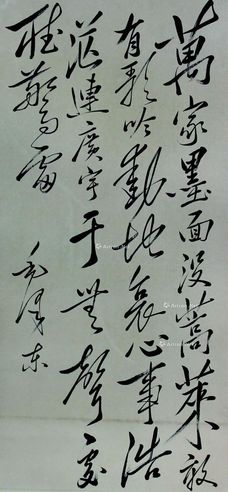 萬家墨面没蒿萊敢
有歌吟動地哀心事浩
茫連廣宇于無聲處
聴驚雷
毛澤东